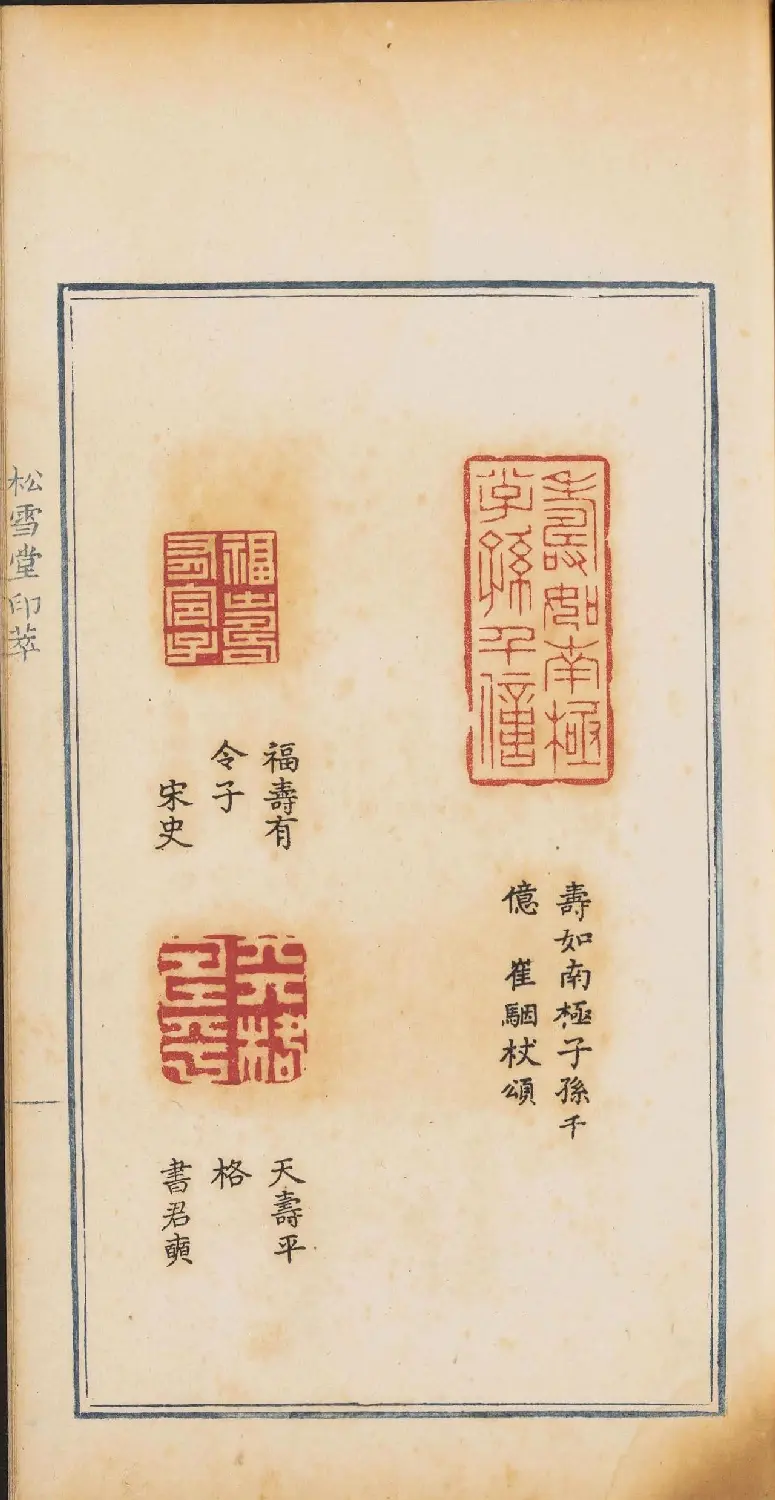 壽如南極
子孫千億
壽如南極子孫千
億 崔駰杖頌
福壽
有令子
福壽有
令子
宋史
天格
壽平
天壽平
格
書君奭
松雪堂印萃